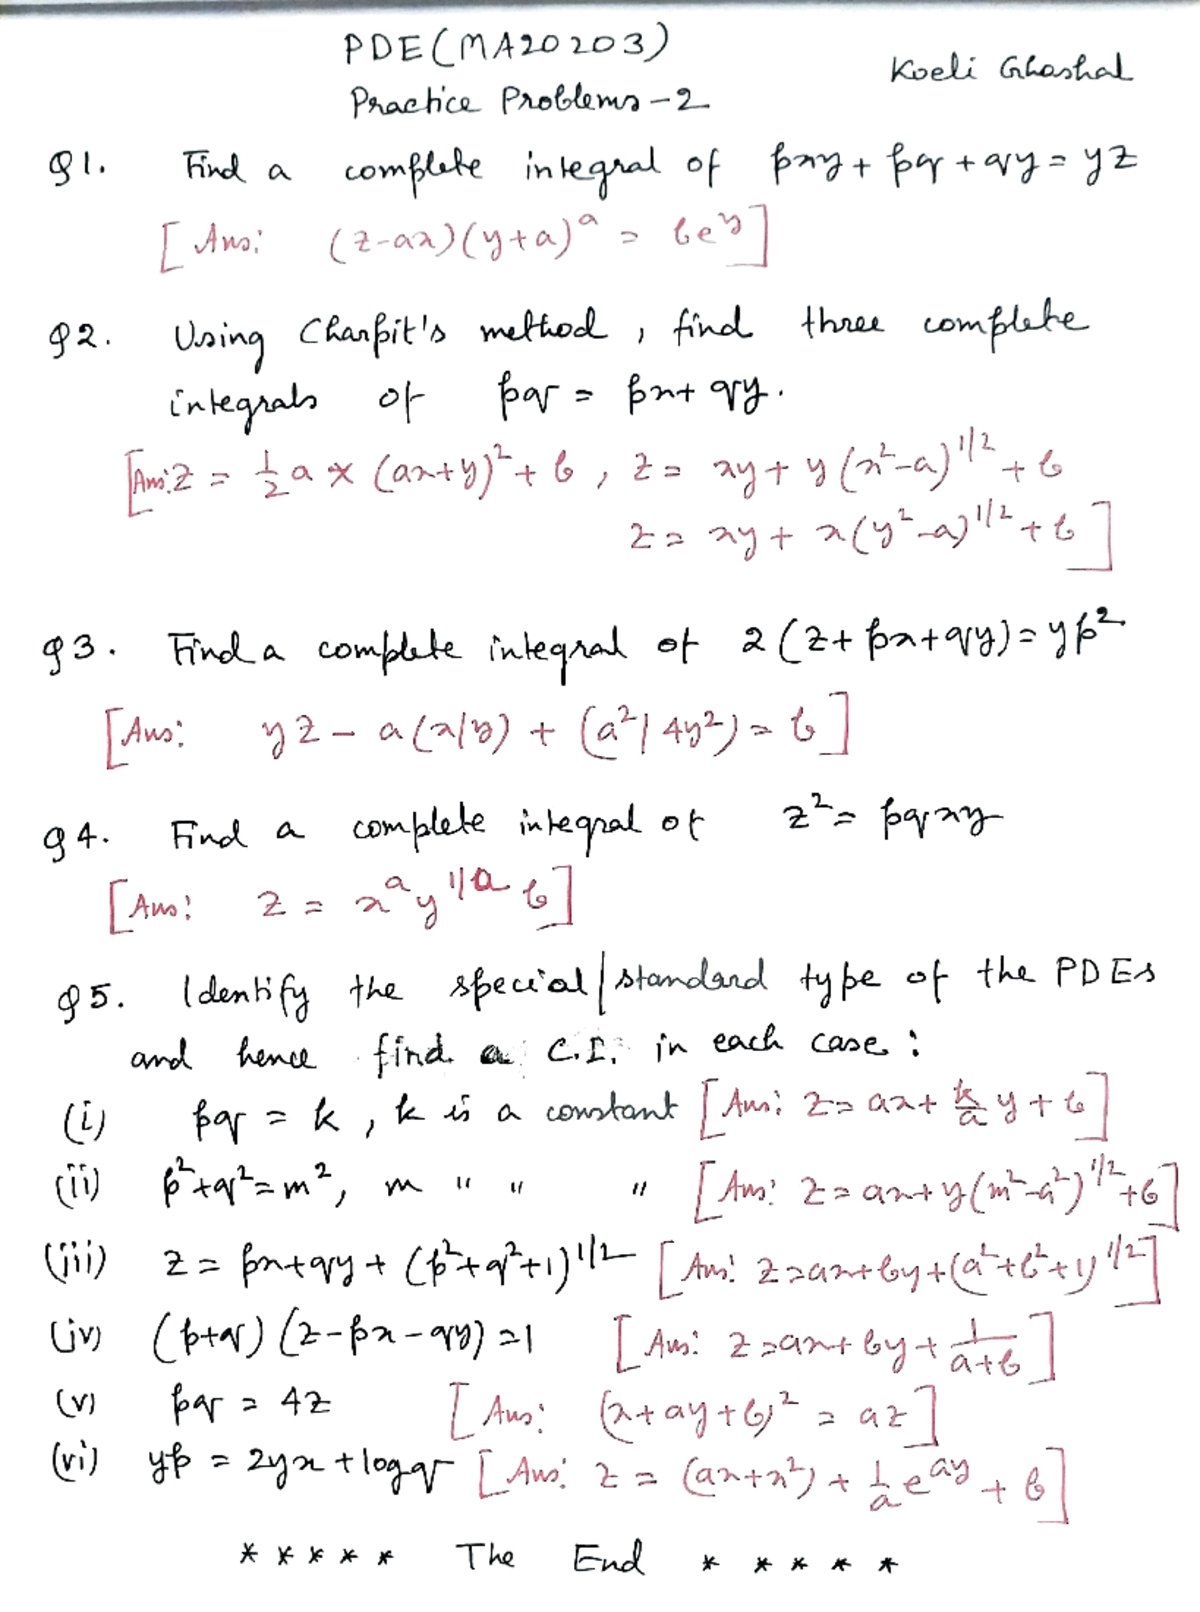 PDE(MA20203)
Koeli Ghoshal
Practice Problems-2
Q1. Find a complete integral of pxy + pq + qy = yz
[Ans: (z-ax)(y+a)^a = be^y]
Q2. Using Charpit's method, find three complete
integrals of pq = px + qy.
[Ans: z = 1/2 a × (ax+y)^2 + b, z = xy + y(x^2-a)^1/2 + b
z = xy + x(y^2-a)^1/2 + b]
Q3. Find a complete integral of 2(z+px+qy) = yp^2
[Ans: yz - a(x/y) + (a^2/4y^2) = b]
Q4. Find a complete integral of z^2 = pqxy
[Ans: z = x^a y^1/a b]
Q5. Identify the special/standard type of the PDEs
and hence find a C.I. in each case:
(i) pq = k, k is a constant [Ans: z = ax + k/a y + b]
(ii) p^2+q^2 = m^2, m " " " [Ans: z = ax + y(m^2-a^2)^1/2 + b]
(iii) z = px+qy + (p^2+q^2+1)^1/2 [Ans: z = ax+by+(a^2+b^2+1)^1/2]
(iv) (p+q)(z-px-qy) = 1 [Ans: z = ax + by + 1/a+b]
(v) pq = 4z [Ans: (x+ay+b)^2 = az]
(vi) yp = 2yx + log q [Ans: z = (ax+x^2) + 1/a e^ay + b]
* * * * * The End * * * * *